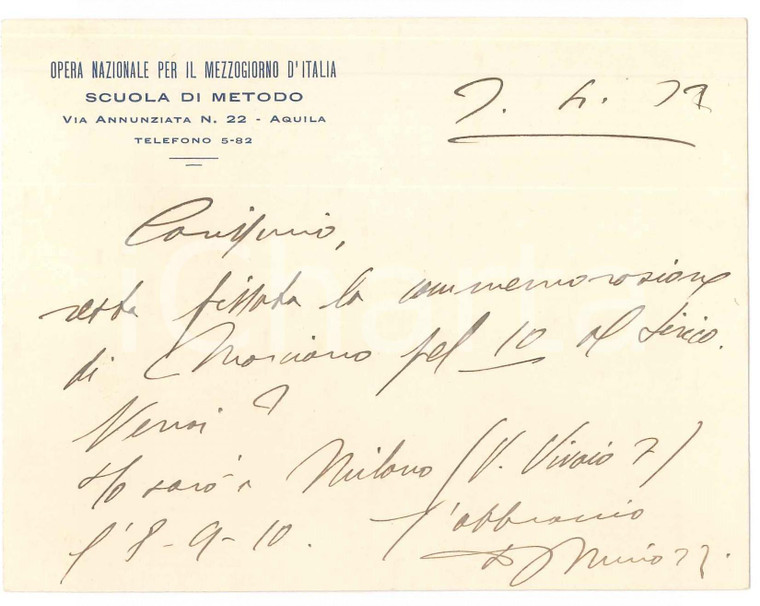 OPERA NAZIONALE PER IL MEZZOGIORNO D'ITALIA
SCUOLA DI METODO
VIA ANNUNZIATA N. 22 - AQUILA
TELEFONO 5-82
Carissimo,
resta fissata la commemorazione
di Marciano pel 10 al Lirico.
Verrai?
Io sarò a Milano (V. Vivaio 7)
l'8-9-10. l'abbraccio